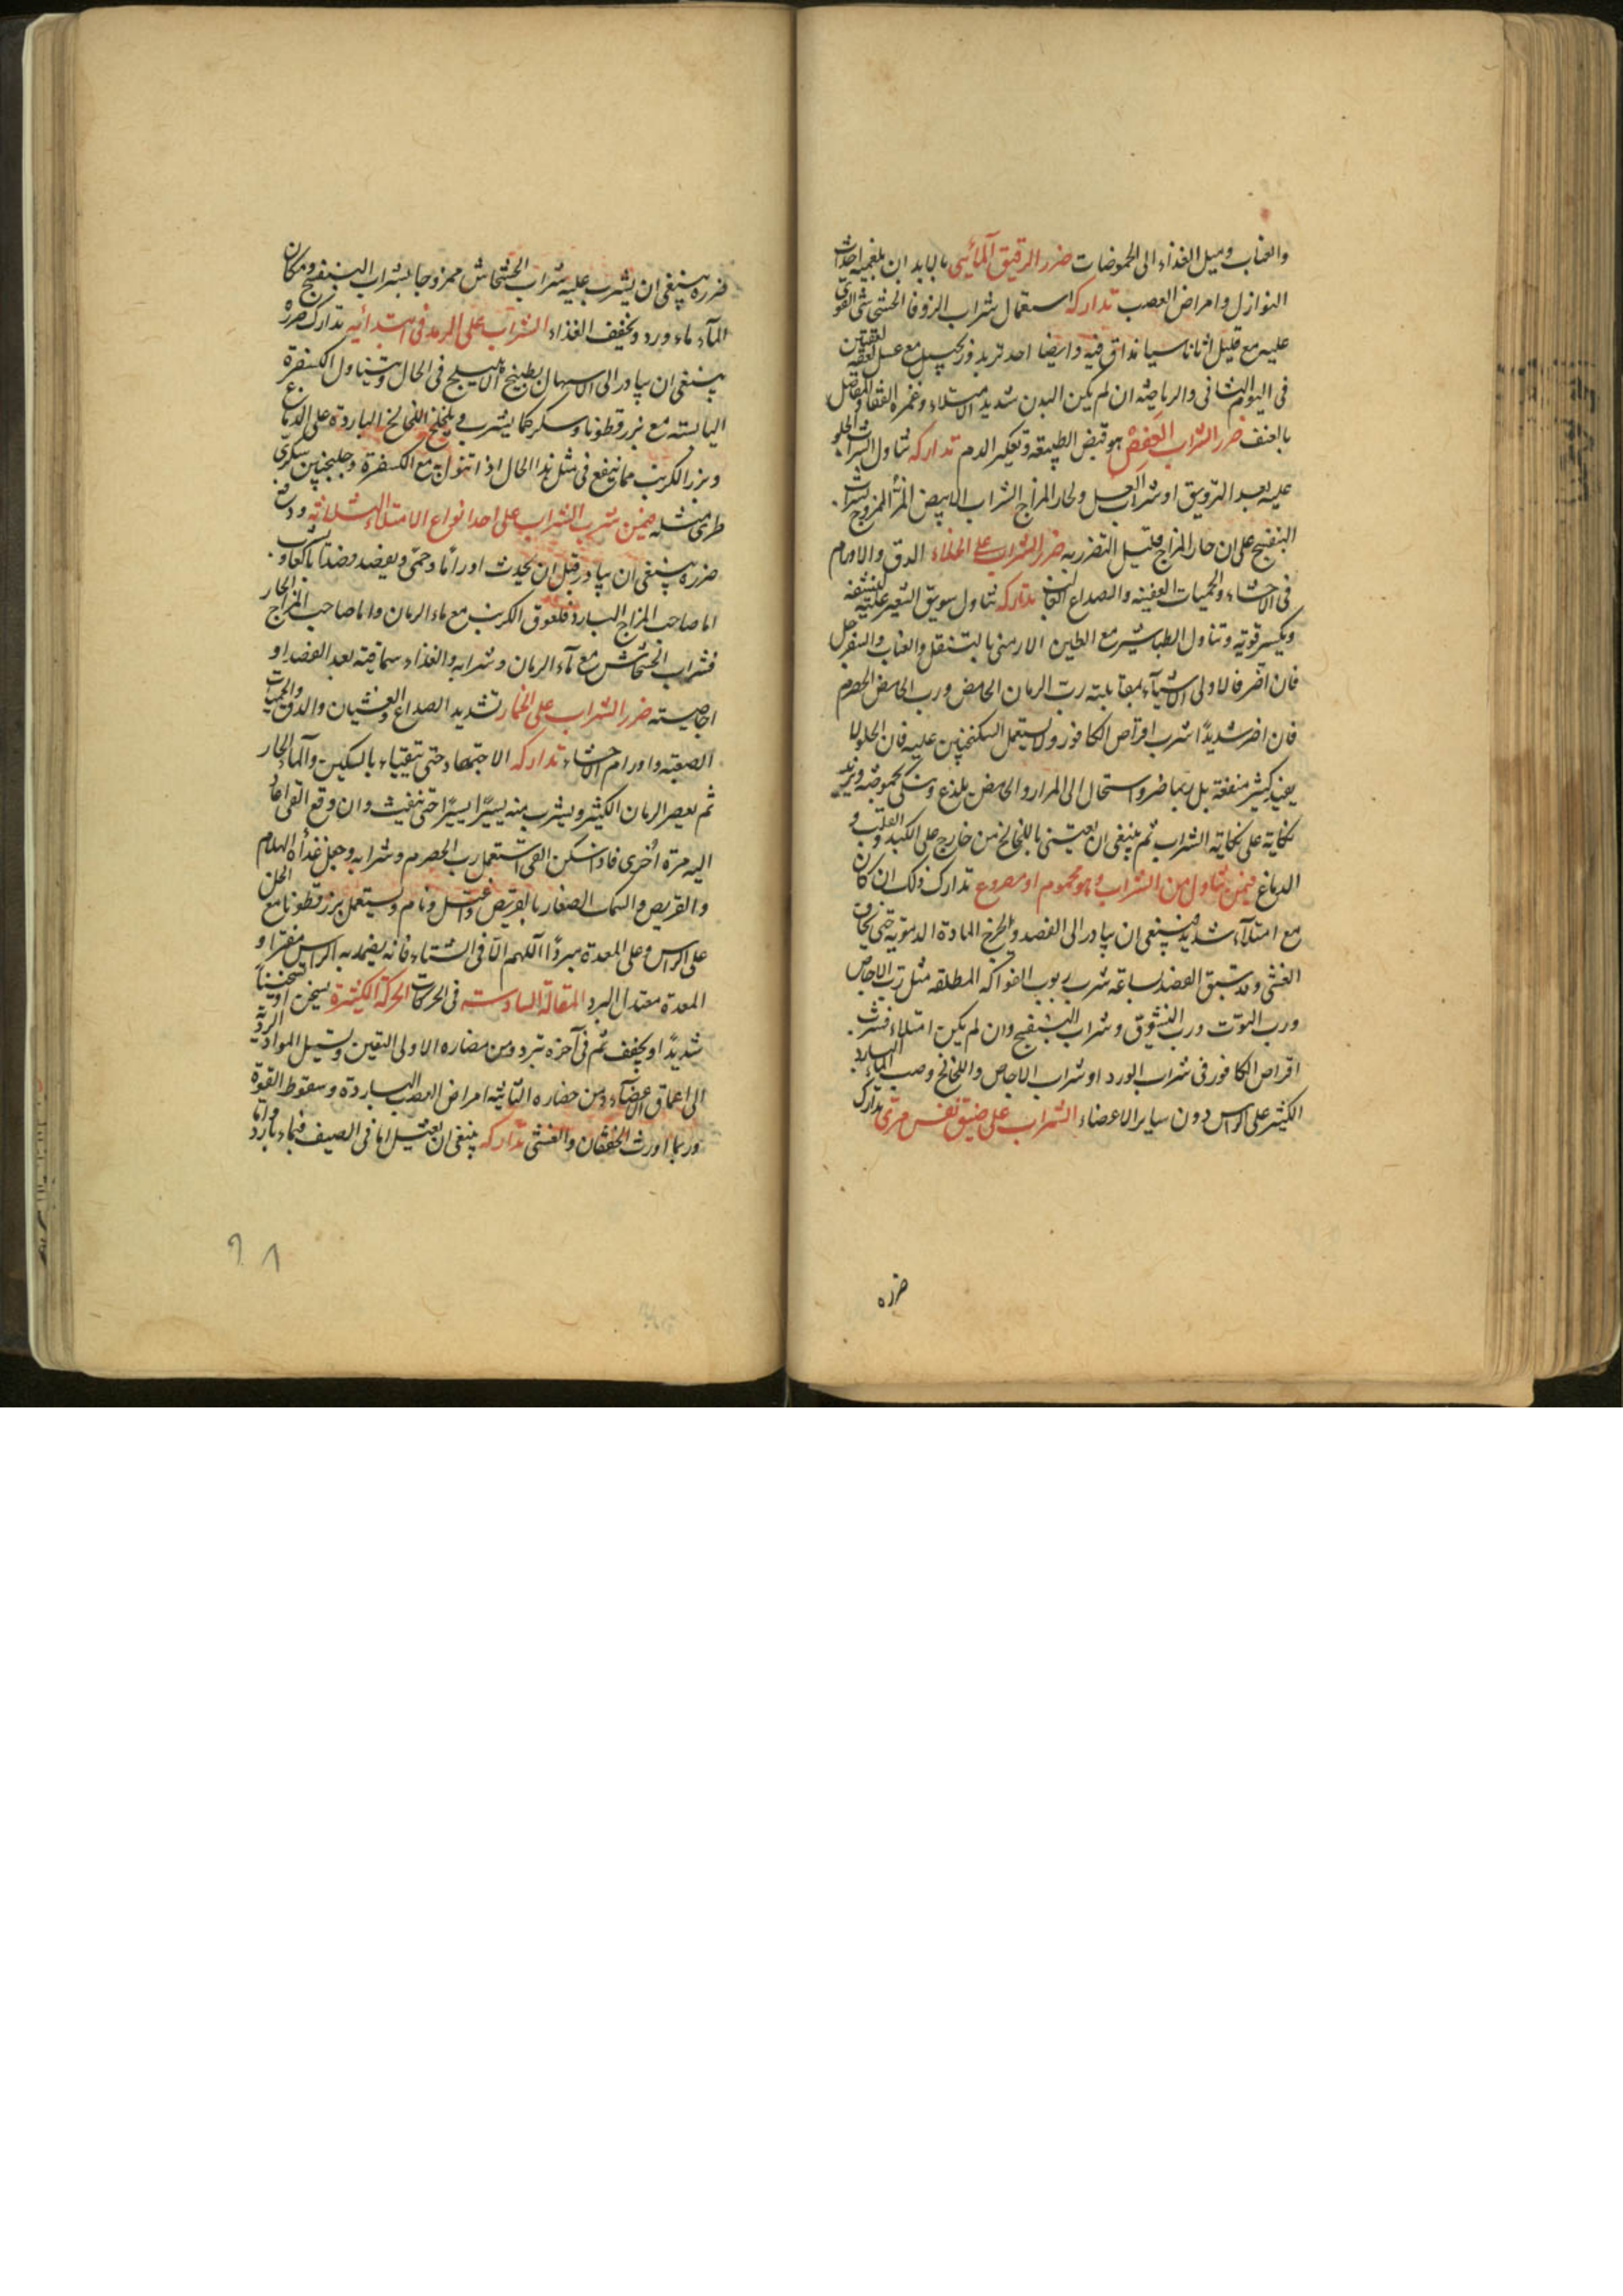 والعناب وميل الغذاء الى الحموضات ضرر الرقيق المائي بالبابد ان بلغميه احداث
النوازل وامراض العصب تداركه استعمال شراب الزوفا القوى
عليه مع قليل اناناسيا نداق فيه وايضا احد تربد وزنجبيل مع عسل لعقه لعقتين
فى اليوم الثانى والرياضه ان لم يكن البدن شديد الامتلاء وغمزه القفا والمفاصل
بالعنف ضرر الشراب العفص هو قبض الطبيعه وتعكير الدم تداركه تناول الشراب الحلو
عليه بعد الترويق او شراب العسل ولحار المزاج الشراب الابيض المز الممزوج بشراب
البنفسج على ان حار المزاج قليل التضرر به ضرر الشراب على الخلاء الدق والاورام
فى الاحشاء والحميات العفنيه والصداع تداركه تناول سويق الشعير عليه لينشفه
ويكسر قوته وتناول الطباشير مع الطين الارمنى بالتنقل والعناب والسفرجل
فان اضر فالاولى الاشياء بمقابلته رب الرمان الحامض ورب الحامض الحصرم
فان اضر شديدا شرب اقراص الكافور ولا يستعمل السكنجبين عليه فان الحلو لا
يفيد كثير منفعة بل ربما ضر واستحال الى المرار والحامض يلذع وينكى بحموضته ويزيد
نكايه على نكاية الشراب ثم ينبغى ان يعتنى باللخالخ من خارج على الكبد والقلب و
الدماغ فيمن تناول من الشراب وهو محموم او مصروع تدارك ذلك ان كان
مع امتلاء شديد فينبغى ان يبادر الى الفصد ويخرج المادة الدمويه حتى يخاف
الغشى وقد يسبق الفصد بساعه شرب ربوب الفواكه المطلقه مثل رب الاجاص
ورب التوت ورب وشراب البنفسج وان لم يكن امتلاء فشرب
اقراص الكافور فى شراب الورد او شراب الاجاص واللخالخ وصب الماء البارد
الكثير على الراس دون ساير الاعضاء الشراب على ضيق نفس مرى تدارك
ضرره
ضرره ينبغى ان يشرب عليه شراب الخشخاش ممزوجا بشراب البنفسج ومكان
الماء ماء ورد ويخفف الغذاء الشراب على الرمد فى ابتدائيه تدارك ضرره
ينبغى ان يبادر الى الاسهال بطبيخ الاهليلج فى الحال ويتناول الكسفرة
اليابسته مع بزرقطونا وسكر كما يشرب ويلخلخ اللخالخ الباردة على الدماغ
وبزر الكرنب مما ينفع فى مثل هذا الحال اذا تنول مع الكسفرة وجلنجبين سكرى
طرى مثله فيمن شرب الشراب على احد انواع الامتلاء الثلاثه ودفع
ضرره ينبغى ان يبادر قبل ان يحدث اوراما وحمى ويفصد فصدا
اما صاحب المزاج البارد فلعوق الكرنب مع ماء الرمان واما صاحب المزاج الحار
فشراب الخشخاش مع ماء الرمان وشرابه والغذاء سماقيته بعد الفصد او
اجاصيته ضرر الشراب على الخمار تشديد الصداع والغثيان والدق والحميات
الصعبه واورام الاحشاء تداركه الاجتهاد حتى يتقياء بالسكنجبين والماء الحار
ثم يعصر الرمان الكثير ويشرب منه يسيرا يسيرا حتى ينفث وان وقع القى اعاد
اليه مرة اخرى فاذا سكن القى استعمل رب الحصرم وشرابه وجعل غداه الهلام
والقريص والسماك الصغار بالقريص واغتسل ونام ويستعمل بزرقطونا مع الخل
على الراس وعلى المعدة مبردا اللهم الا فى الشتاء فانه يضمد به الراس مفترا و
المعدة معتدل البرد المقالة السادسته فى الحركات الحركة الكثيرة يسخن او تسخنا
شديدا او يجفف ثم فى آخره تبرد ومن مضاره الاولى وتسيل المواد الردية
الى اعماق الاعضاء ومن مضاره الثانيه امراض العصب الباردة وسقوط القوة
وربما اورث الخفقان والغشى تداركه ينبغى ان يغتسل اما فى الصيف فبماء بارد واما